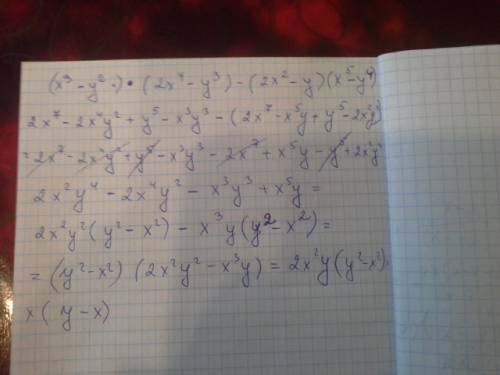 (x³ - y² ) • (2x⁴ - y³) - (2x² - y)(x⁵ - y⁴)
2x⁷ - 2x⁴y² + y⁵ - x³y³ - (2x⁷ - x⁵y + y⁵ - 2x²y⁴)
= 2x⁷ - 2x⁴y² + y⁵ - x³y³ - 2x⁷ + x⁵y - y⁵ + 2x²y⁴
2x²y⁴ - 2x⁴y² - x³y³ + x⁵y =
2x²y²(y² - x²) - x³y(y² - x²) =
= (y² - x²) (2x²y² - x³y) = 2x²y(y² - x²)
x( y - x)